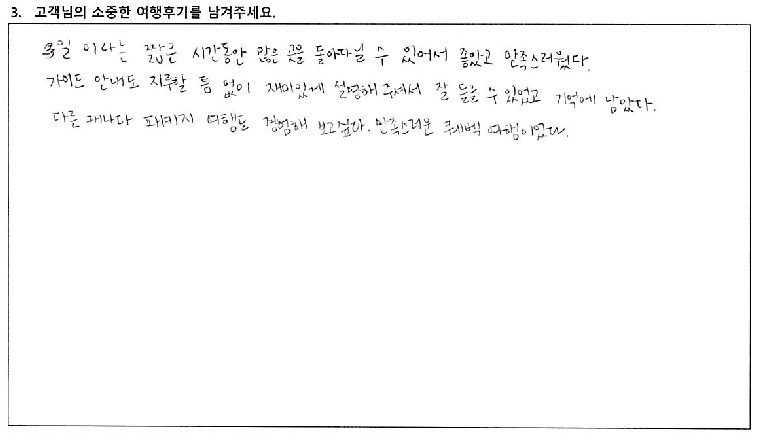 3. 고객님의 소중한 여행후기를 남겨주세요.
이라는 짧은 시간동안 많은 곳을 돌아다닐 수 있어서 좋았고 만족스러웠다.
가이드 안내도 지루할 틈 없이 재미있게 설명해 주셔서 잘 들을 수 있었고 기억에 남았다.
다른 캐나다 패키지 여행도 경험해 보고싶다. 만족스러운 퀘벡 여행이었다.